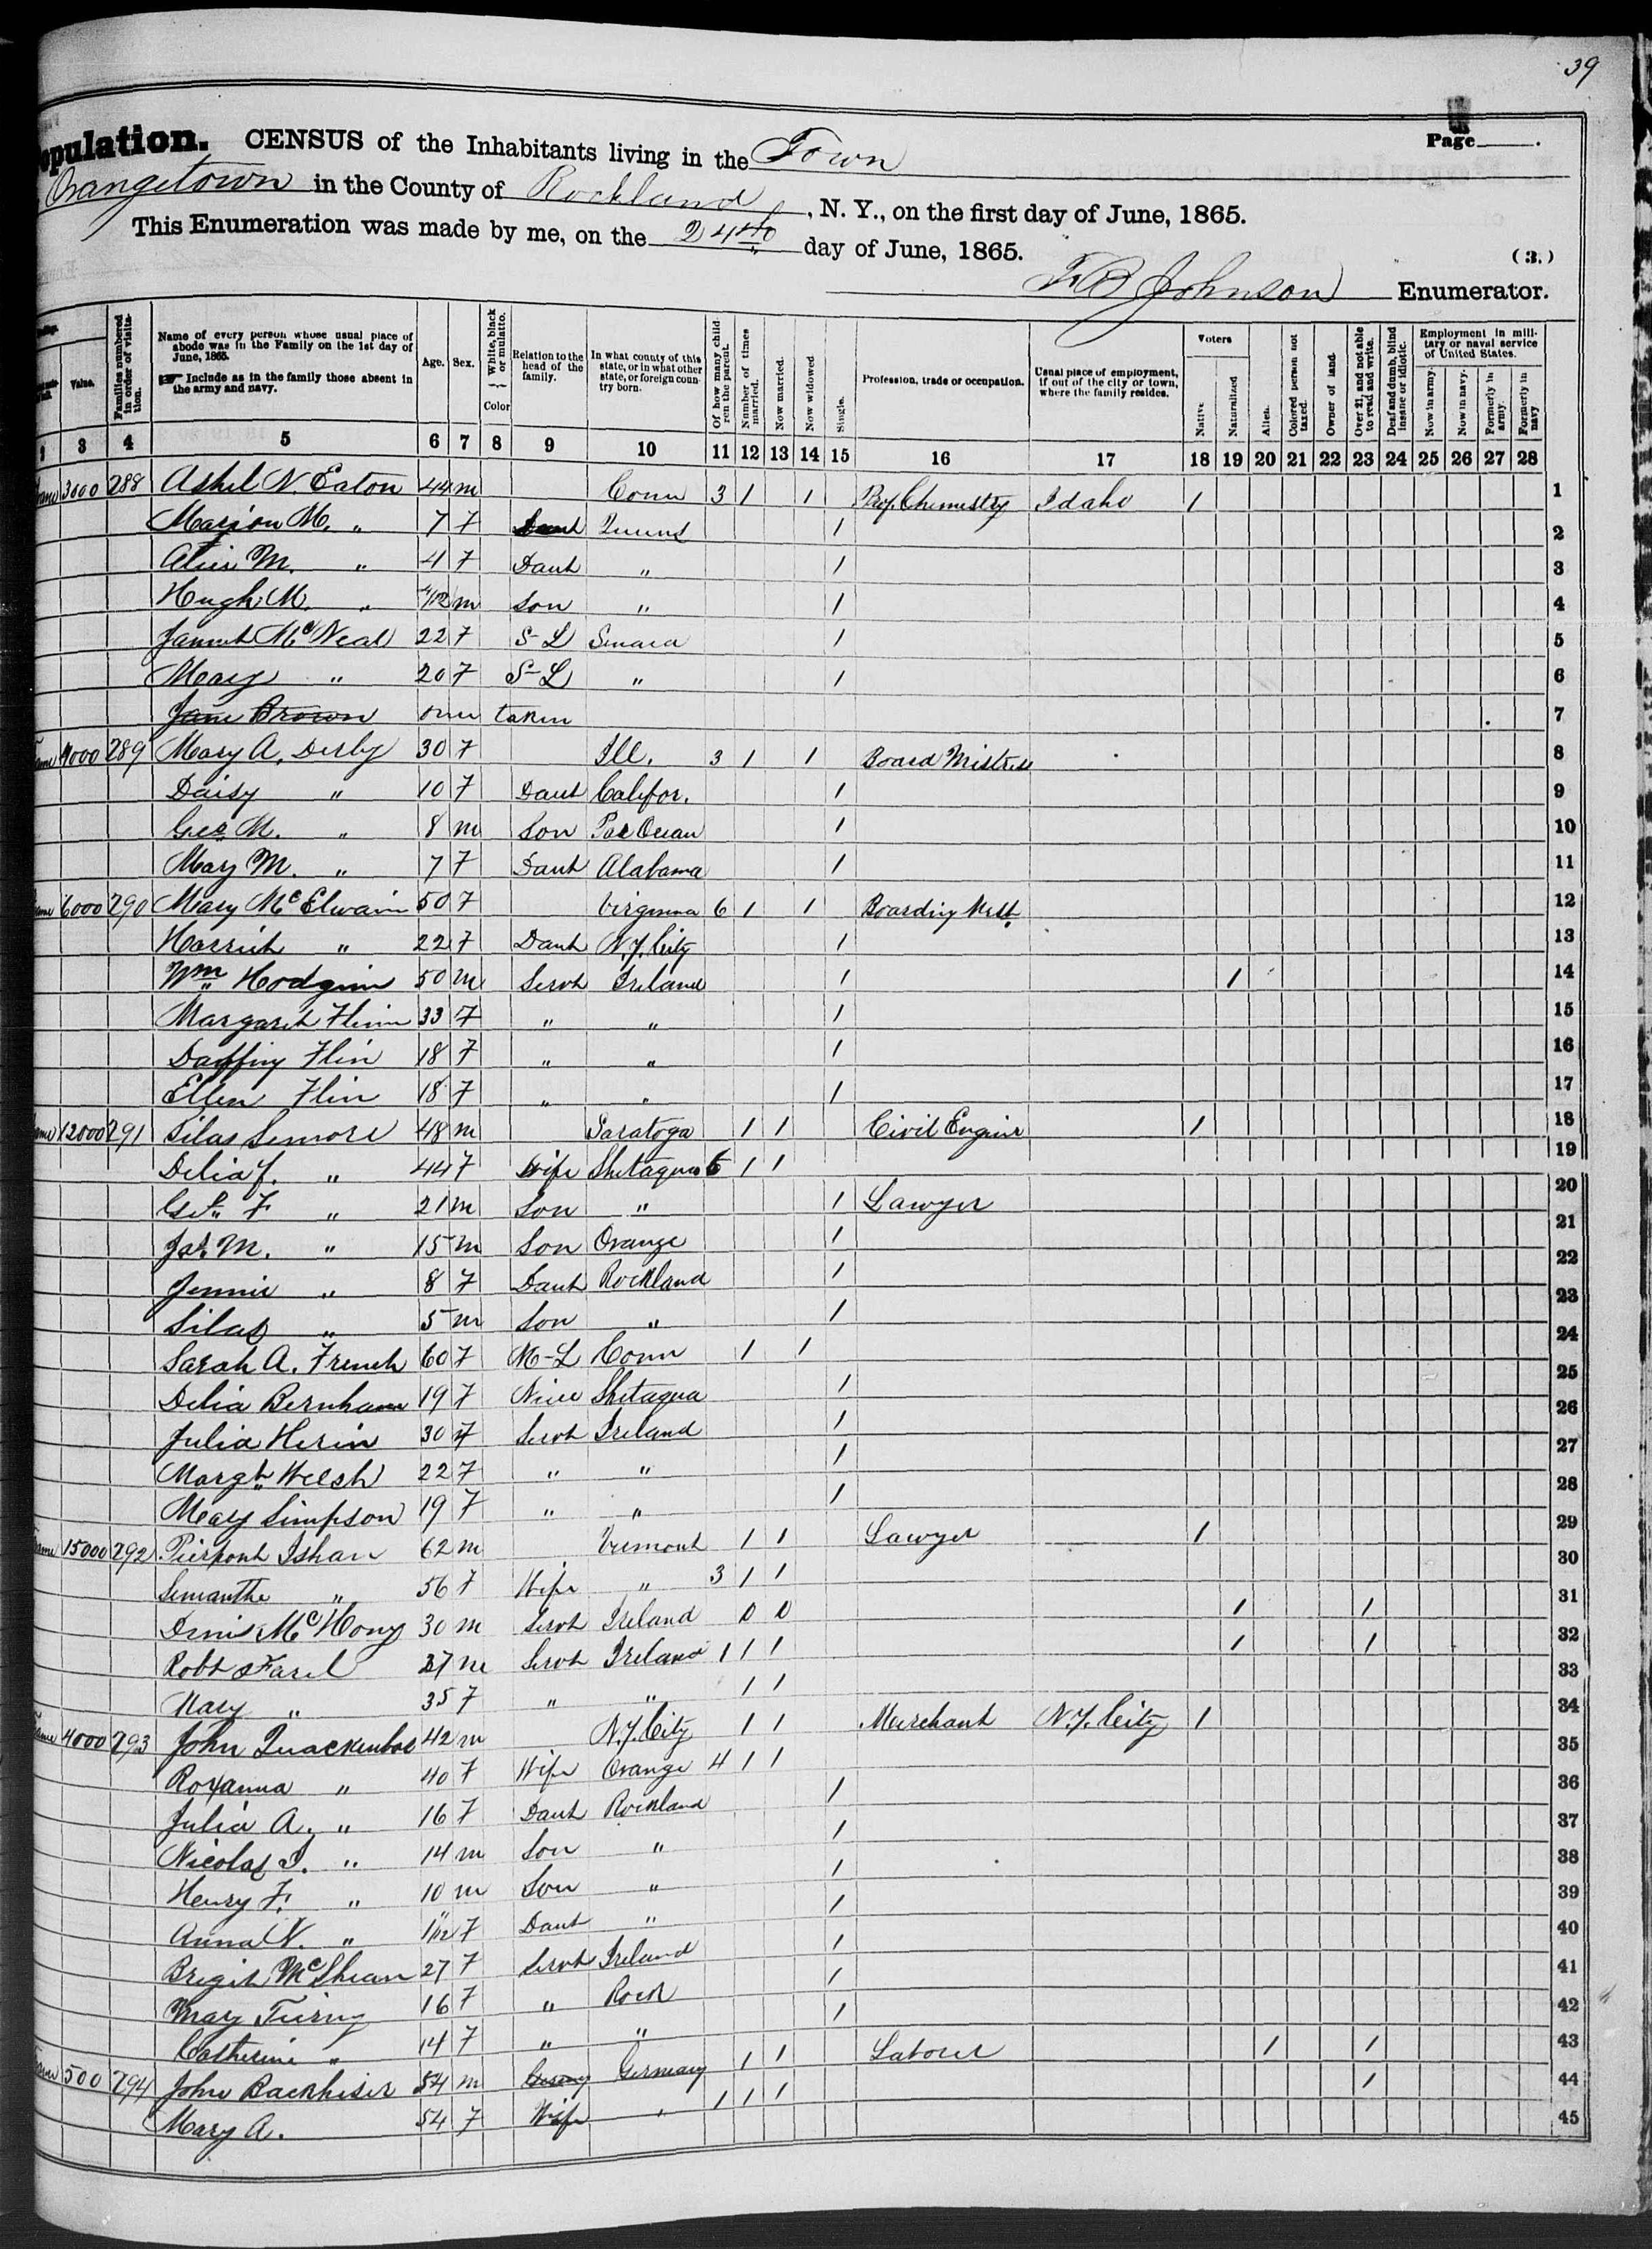 39
Page
opulation. CENSUS of the Inhabitants living in the Town
Orangetown in the County of Rockland, N. Y., on the first day of June, 1865.
This Enumeration was made by me, on the 24th day of June, 1865.
(3.)
F B Johnson Enumerator.
Value. Families numbered in order of visitation. Name of every person whose usual place of abode was in the Family on the 1st day of June, 1865. Include as in the family those absent in the army and navy. Age. Sex. White, black or mulatto. Color Relation to the head of the family. In what county of this state, or in what other state, or foreign country born. Of how many children the parent. Number of times married. Now married. Now widowed Single. Profession, trade or occupation. Usual place of employment, if out of the city or town, where the family resides. Voters Native Naturalized Alien. Colored person not taxed. Owner of land. Over 21, and not able to read and write. Deaf and dumb, blind insane or idiotic. Employment in military or naval service of United States. Now in army. Now in navy. Formerly in army. Formerly in navy
3 4 5 6 7 8 9 10 11 12 13 14 15 16 17 18 19 20 21 22 23 24 25 26 27 28
3000 288 Ashel N. Eaton 44 m Conn 3 1 1 Prof. Chemistry Idaho 1 1
Marion M. " 7 F Daut Queens 1 2
Alice M. " 4 F Daut " 1 3
Hugh M. " m Son " 1 4
McNeal 22 F S-L 1 5
Mary " 20 F S-L " 1 6
Jane Brown taken 7
4000 289 Mary A. Derby 30 F Ill. 3 1 1 Board Mistress 8
Daisy " 10 F Daut Califor. 1 9
Geo. M. " 8 m Son Pac Ocean 1 10
Mary M. " 7 F Daut Alabama 1 11
6000 290 Mary McElwain 50 F Virginna 6 1 1 Boarding 12
Harriet " 22 F Daut N.Y. City 1 13
Wm Hodgin 50 m Servt Ireland 1 1 14
Margaret Flinn 33 F " " 1 15
Flin 18 F " " 1 16
Ellen Flin 18 F " " 1 17
12000 291 Silas 48 m Saratoga 1 1 Civil Engine 1 18
Delia f. " 44 F Wife Shetaqua 1 1 19
F " 21 m Son " 1 Lawyer 20
Jas M. " 15 m Son Orange 1 21
Jennie " 8 F Daut Rockland 1 22
Silas " 5 m Son " 1 23
Sarah A. French 60 F M-L Conn 1 1 24
Delia Bernham 19 F Niece Shetaqua 1 25
Julia Herin 30 F Servt Ireland 1 26
Margt Welsh 22 F " " 1 27
Mary Simpson 19 F " " 1 28
15000 292 Pierpont Isham 62 m Vermont 1 1 Lawyer 1 29
Semanthe " 56 F Wife " 3 1 1 30
McHony 30 m Servt Ireland 0 0 1 1 31
Robt Farel 37 m Servt Ireland 1 1 1 1 1 32
Mary " 35 F " " 1 1 33
4000 293 John Quackenbos 42 m N.Y. City 1 1 Merchant N.Y. City 1 34
Roxanna " 40 F Wife Orange 4 1 1 35
Julia A. " 16 F Daut Rockland 1 36
Nicolas I. " 14 m Son " 1 37
Henry F. " 10 m Son " 1 38
Anna N. " F Daut " 1 39
Brigit McShean 27 F Servt Ireland 1 40
Mary 16 F " Rock 1 41
Catherine " 14 F " " 1 42
500 294 John Backhiser 54 m Germany 1 1 Laborer 1 1 43
Mary A. 54 F Wife " 1 1 1 1 44
45